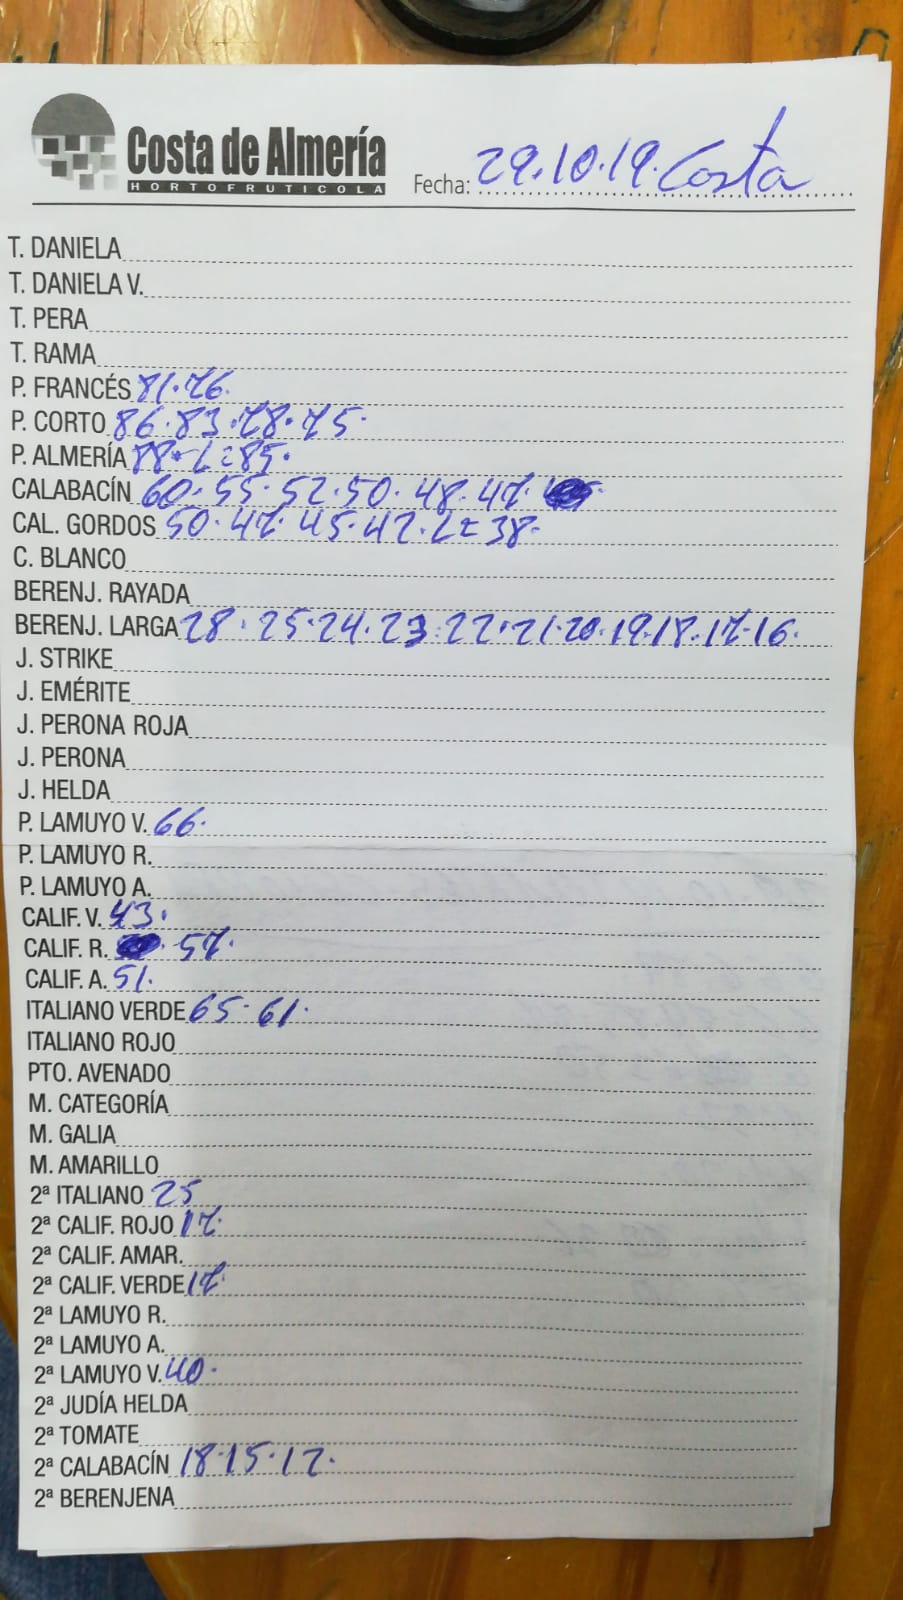 Costa de Almería
HORTOFRUTICOLA
Fecha: 29.10.19. Costa
T. DANIELA
T. DANIELA V.
T. PERA
T. RAMA
P. FRANCÉS 81.76.
P. CORTO 86.83.78.75.
P. ALMERÍA 88.L=85.
CALABACÍN 60.55.52.50.48.47.
CAL. GORDOS 50.47.45.42.L=38.
C. BLANCO
BERENJ. RAYADA
BERENJ. LARGA 28.25.24.23.22.21.20.19.18.17.16.
J. STRIKE
J. EMÉRITE
J. PERONA ROJA
J. PERONA
J. HELDA
P. LAMUYO V. 66.
P. LAMUYO R.
P. LAMUYO A.
CALIF. V. 43.
CALIF. R. 57.
CALIF. A. 51.
ITALIANO VERDE 65.61.
ITALIANO ROJO
PTO. AVENADO
M. CATEGORÍA
M. GALIA
M. AMARILLO
2ª ITALIANO 25
2ª CALIF. ROJO 17.
2ª CALIF. AMAR.
2ª CALIF. VERDE 17.
2ª LAMUYO R.
2ª LAMUYO A.
2ª LAMUYO V. 40.
2ª JUDÍA HELDA
2ª TOMATE
2ª CALABACÍN 18.15.12.
2ª BERENJENA